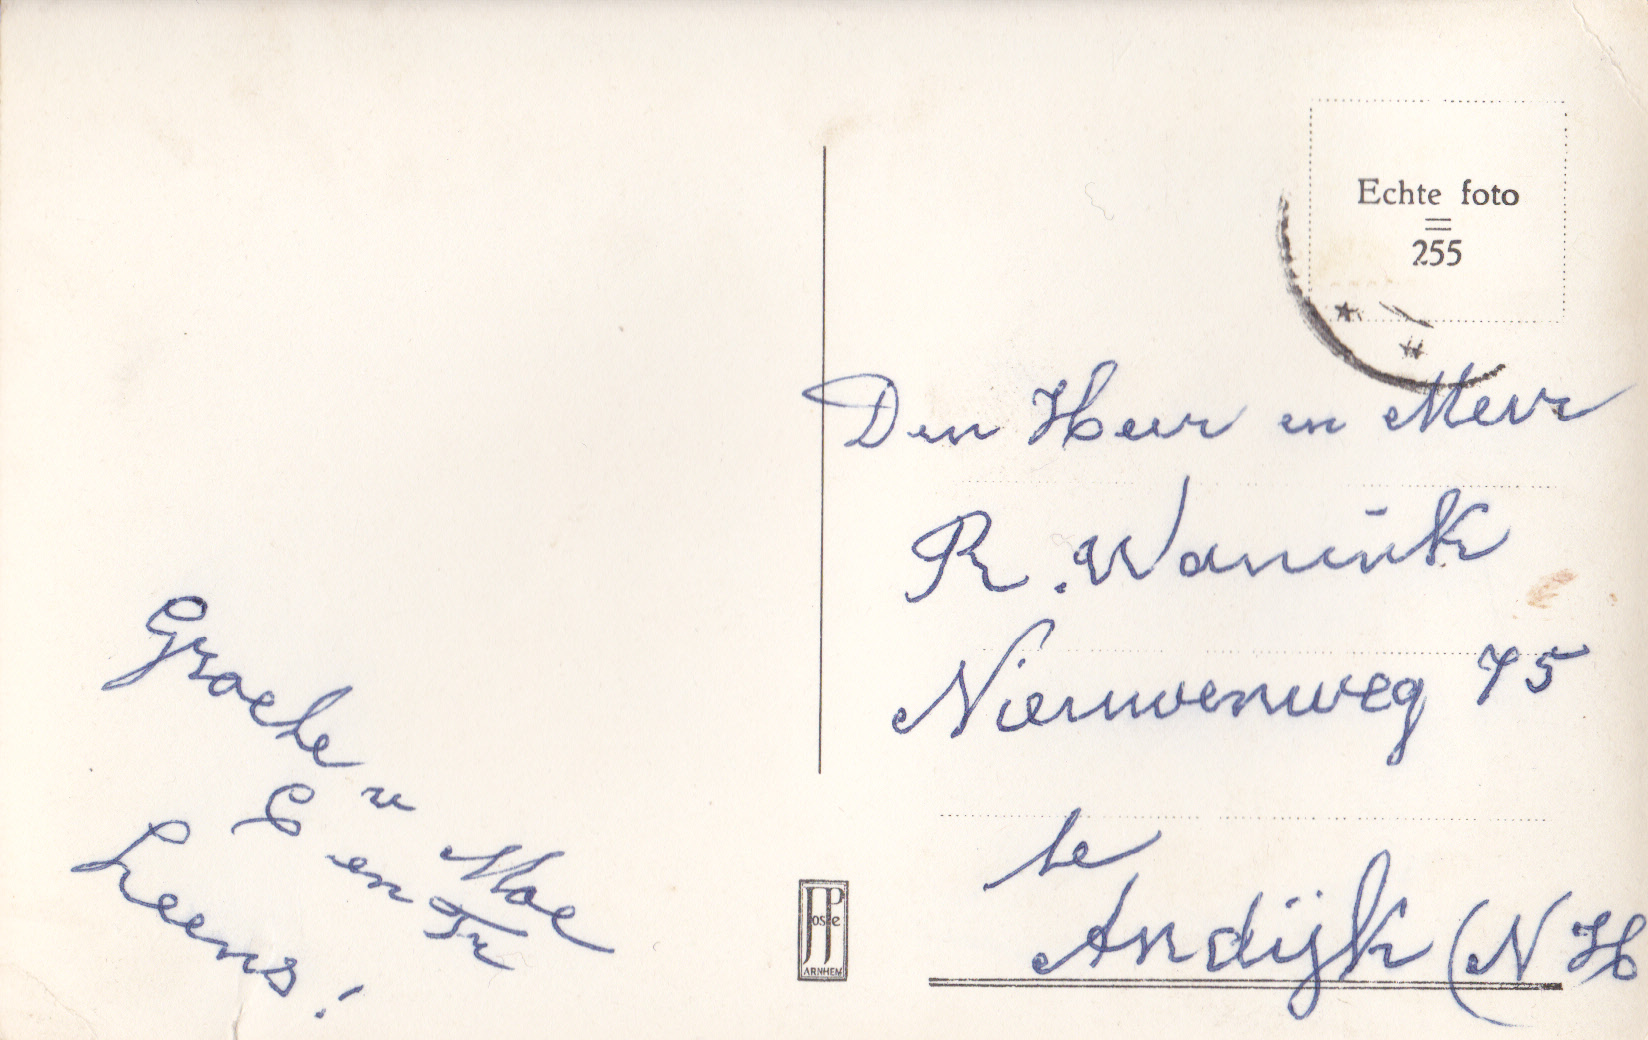 Echte foto
255
Den Heer en Mevr
R. Wanink
Nieuwenweg 75
te
Andijk (N H
Groete
u Moe
E en Tr
Leens!
JP
osse
ARNHEM